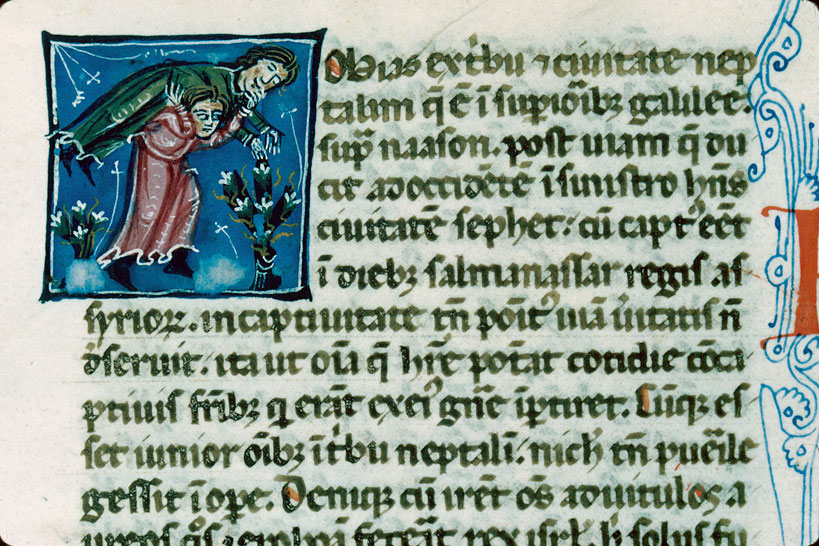 obias ex tͥbu ⁊ ciuitate nep
talim q̄ ē ī supioͥibꝫ galilee.
sup̄ naason. post uiam q̄ du
cit ad occidētē ī sinistro hn̄s
ciuitatē sephet: cū capt᷒ eēt
ī diebꝫ salmanassar regis as
syrioꝝ. in captiuitate tn̄ poīt᷒ uiā ūitatis n̄
dēseruit. ita ut oīa q̄ hr̄e pot̄at cotidie cōca
ptiuis fr̄ibꝫ q erāt ex ei᷒ gn̄e īptiret. Cūqꝫ es
set iunior oībꝫ ī tͥbu neptalī. nich tn̄ pueīle
gessit ī ope. Deniqꝫ cū irēt oēs ad uitulos. a